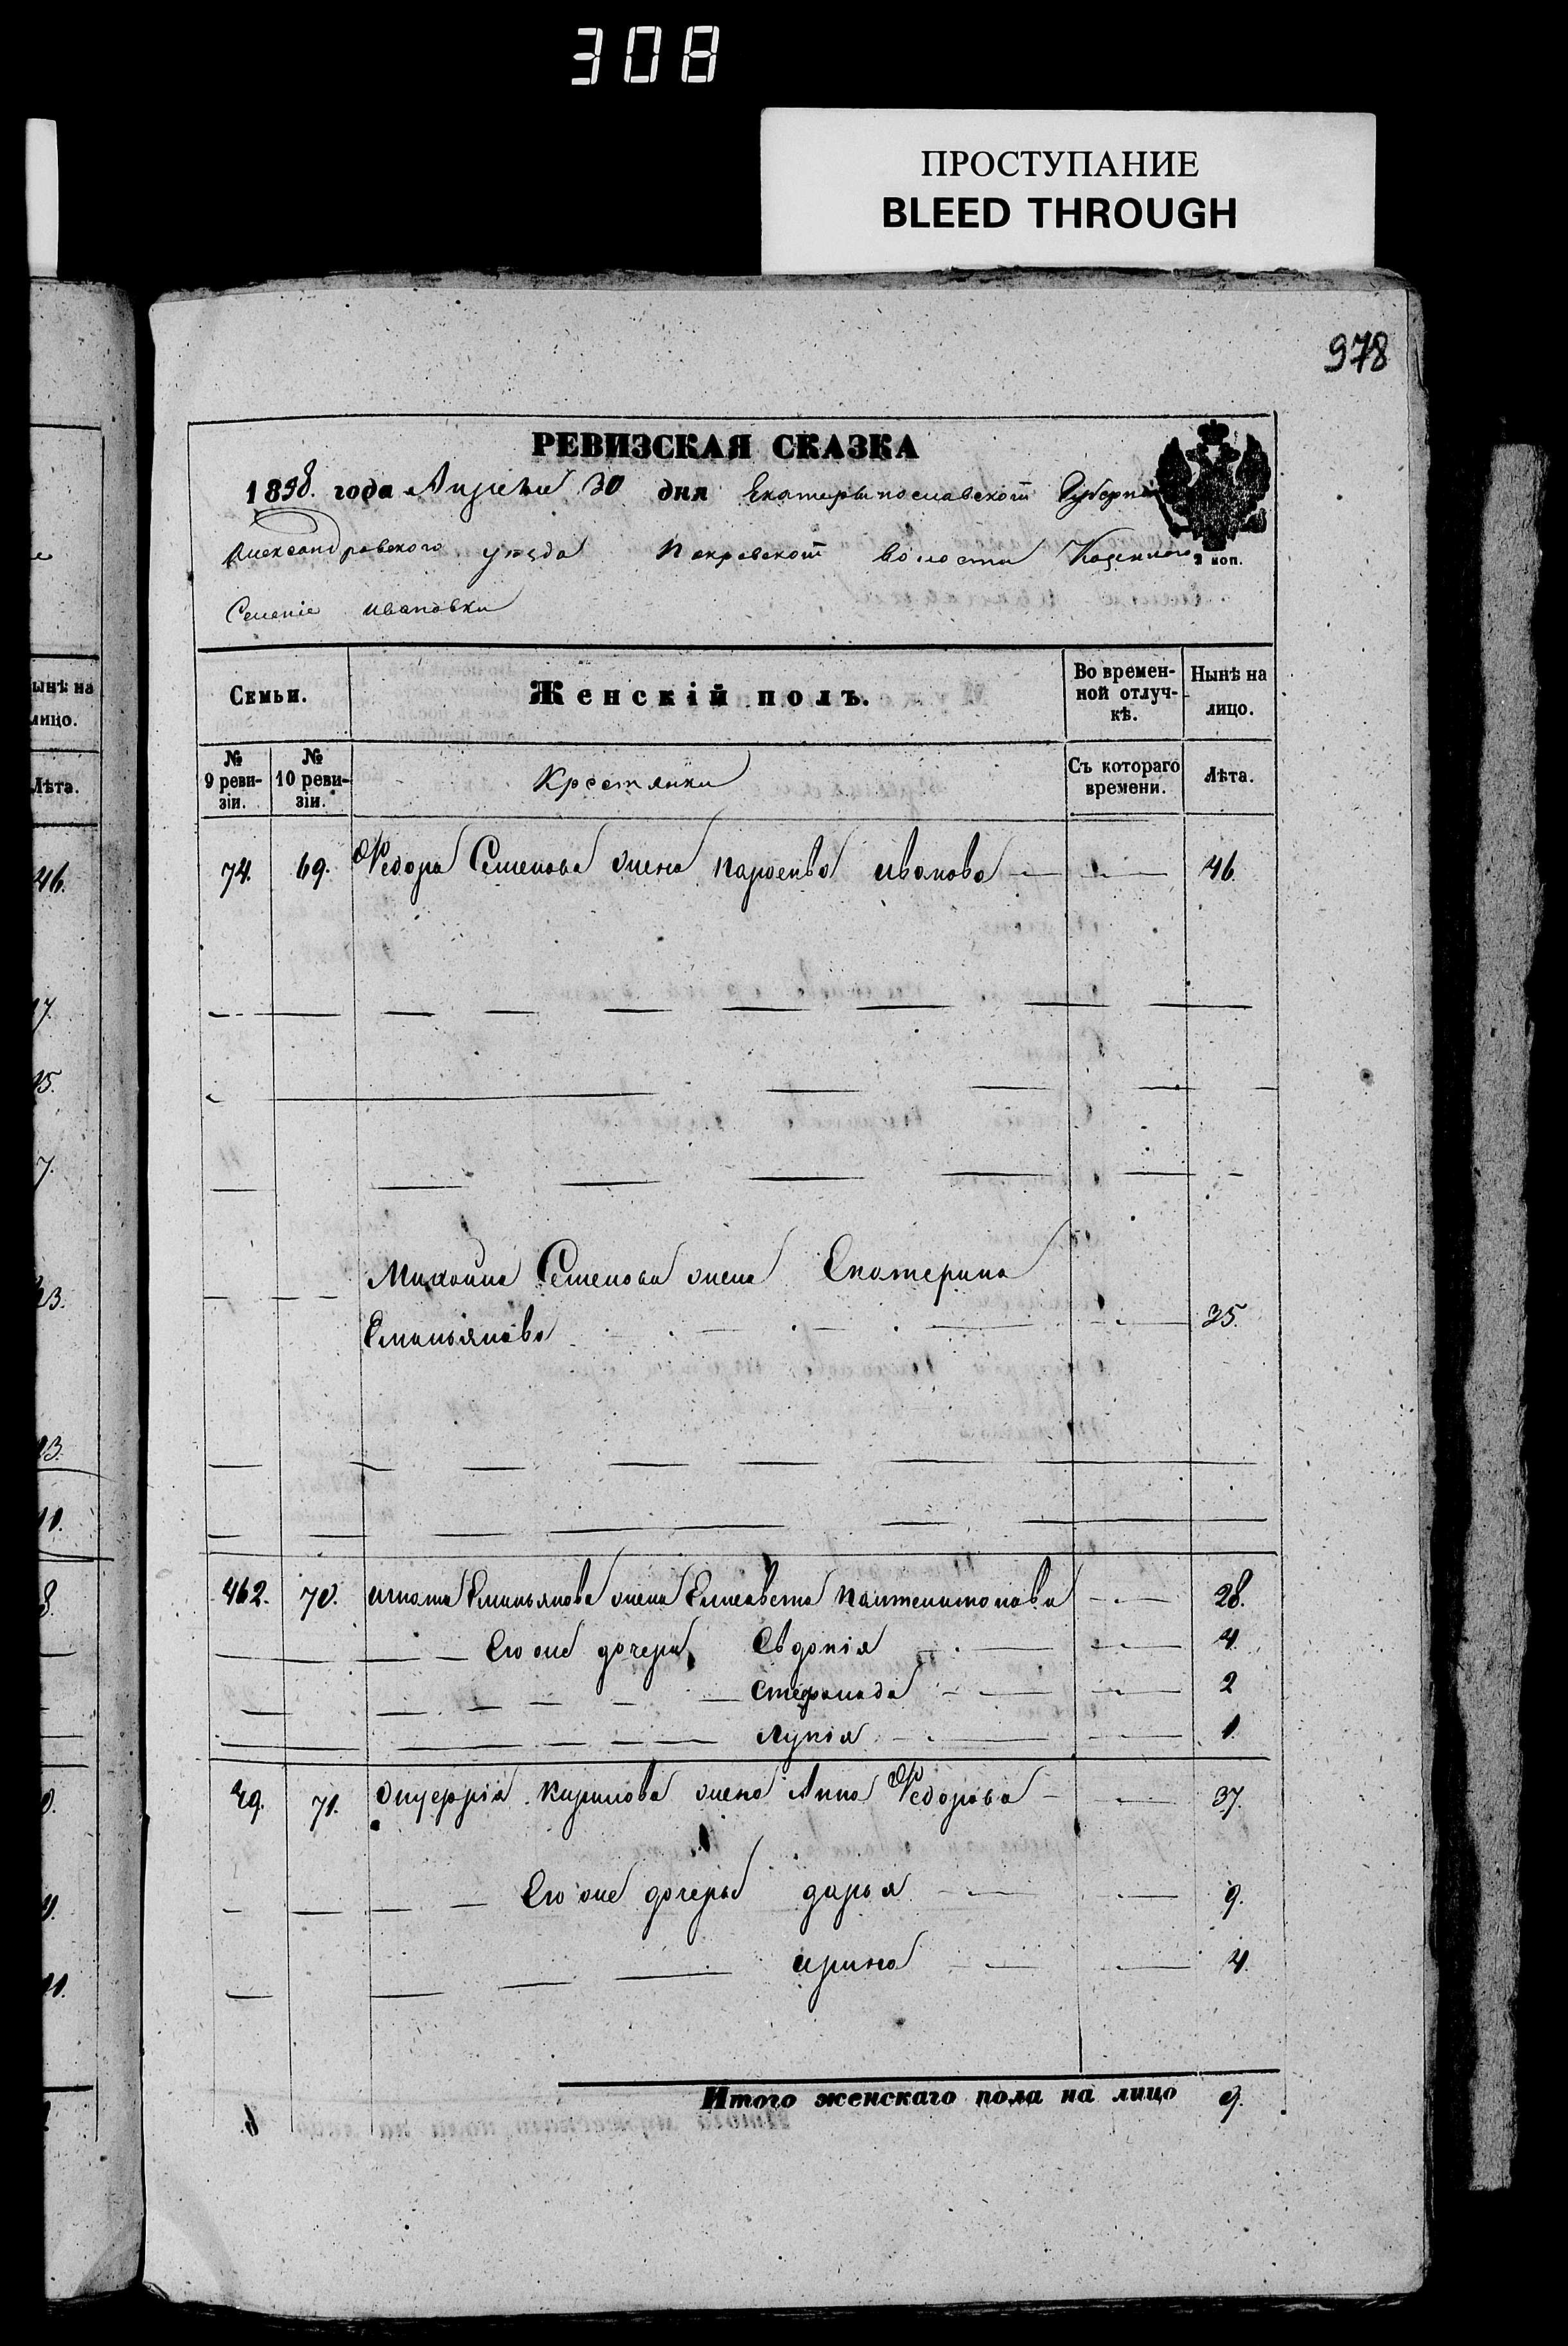 308
ПРОСТУПАНИЕ
BLEED THROUGH
978
РЕВИЗСКАЯ СКАЗКА
1858. года Апреля 30 дня Екатеринославской Губерніи
Александровского уезда Покровской волости Казенного
2 коп.
Селеніе Ивановки
Семьи. Женскій полъ. Во времен-ной отлуч-кѣ. Нынѣ на лицо.
№ 9 реви-зіи. № 10 реви-зіи. Крестянки Съ котораго времени. Лѣта.
74. 69. Федора Семенова жена Парасква Иванова 46.
Михаила Семенова жена Екатерина
Емельянова 35.
462. 70. Игната Емельянова жена Елисавета 28.
Его же дочери Евдокія 4.
Стефанида 2
Лукія 1.
49. 71. Кирилова жена Анна Федорова 37.
Его же дочерь дарья 9.
ирина 4.
Итого женскаго пола на лицо 9.
ынѣ на
лицо.
Лѣта.
46.
17.
15.
7.
23.
13.
11.